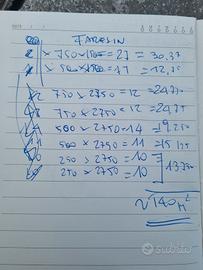 FARESIN
x 750 x 1500 = 27 = 30.37
x 500 x 1500 = 17 = 12,75
750 x 2750 = 12 = 24,75
750 x 2750 = 12 = 24,75
500 x 2750 = 14 = 19.250
500 x 2750 = 11 = 15.125
250 x 2750 = 10
250 x 2750 = 10
13.750
~ 140 m²
subito